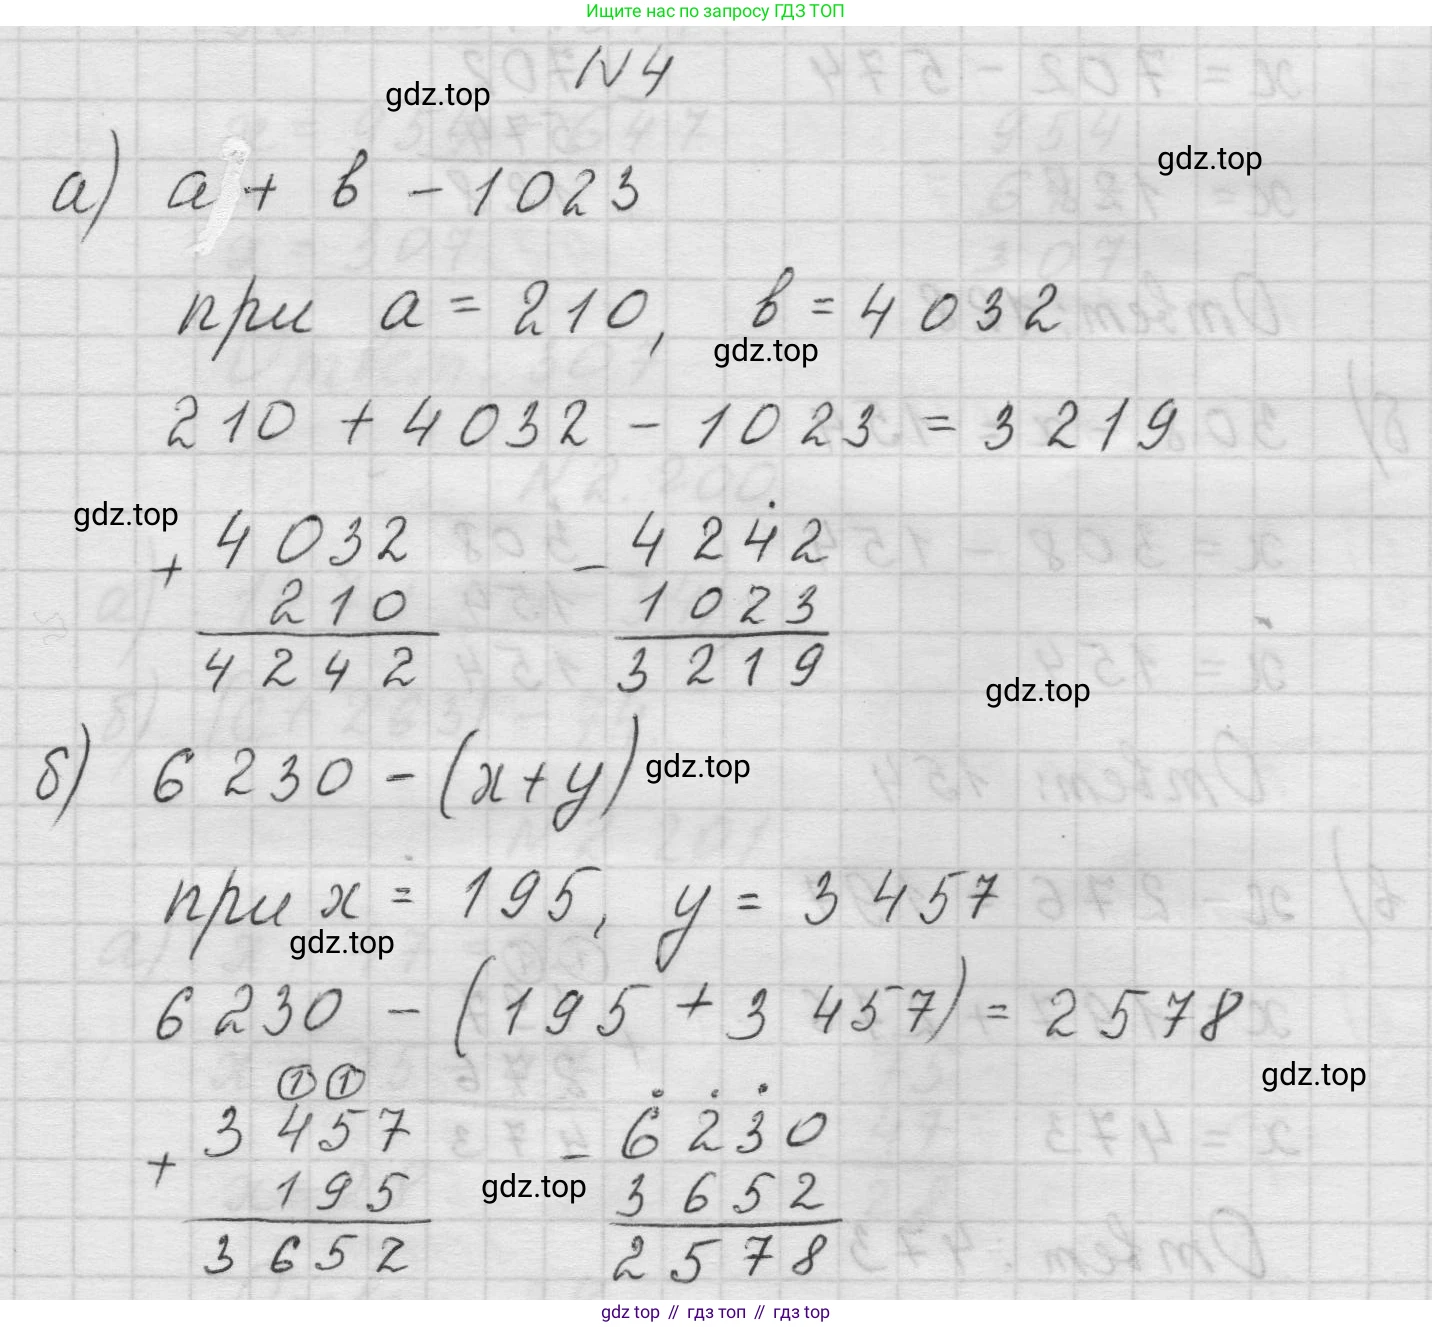 Ищите нас по запросу ГДЗ ТОП
N4
gdz.top
gdz.top
а) a + b - 1023
при a = 210, b = 4032
gdz.top
210 + 4032 - 1023 = 3219
gdz.top
+ 4032 - 4242
210 1023
4242 3219
gdz.top
б) 6230 - (x+y)
gdz.top
при x = 195, y = 3457
gdz.top
6230 - (195 + 3457) = 2578
gdz.top
1 1
+ 3457 - 6230
195 3652
gdz.top
3652 2578
gdz top // гдз топ // gdz top